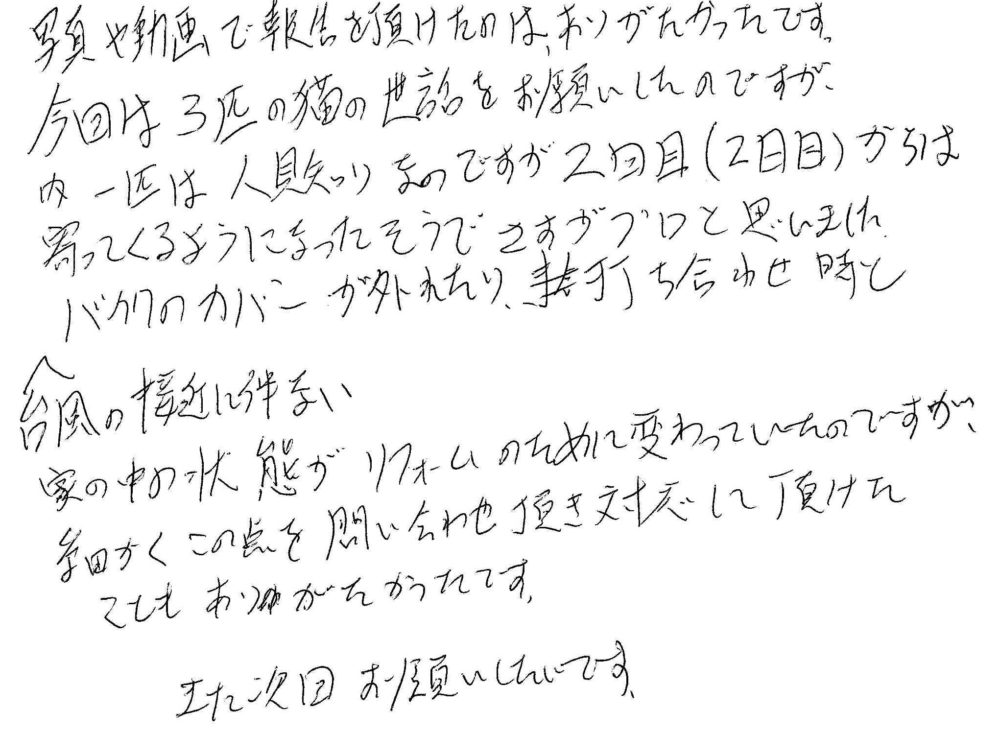 写真や動画で報告を頂けたのは、ありがたかったです。
今回は3匹の猫の世話をお願いしたのですが、
内一匹は人見知りなのですが2回目(2日目)からは
寄ってくるようになったそうでさすがプロと思いました
バルクのカバーが外れたり、打ち合わせ時と
台風の接近に伴ない
家の中の状態がリフォームのために変わっていたのですが、
細かくこの点を問い合わせ頂き対応して頂けた
とてもありがたかったです。
また次回お願いしたいです。